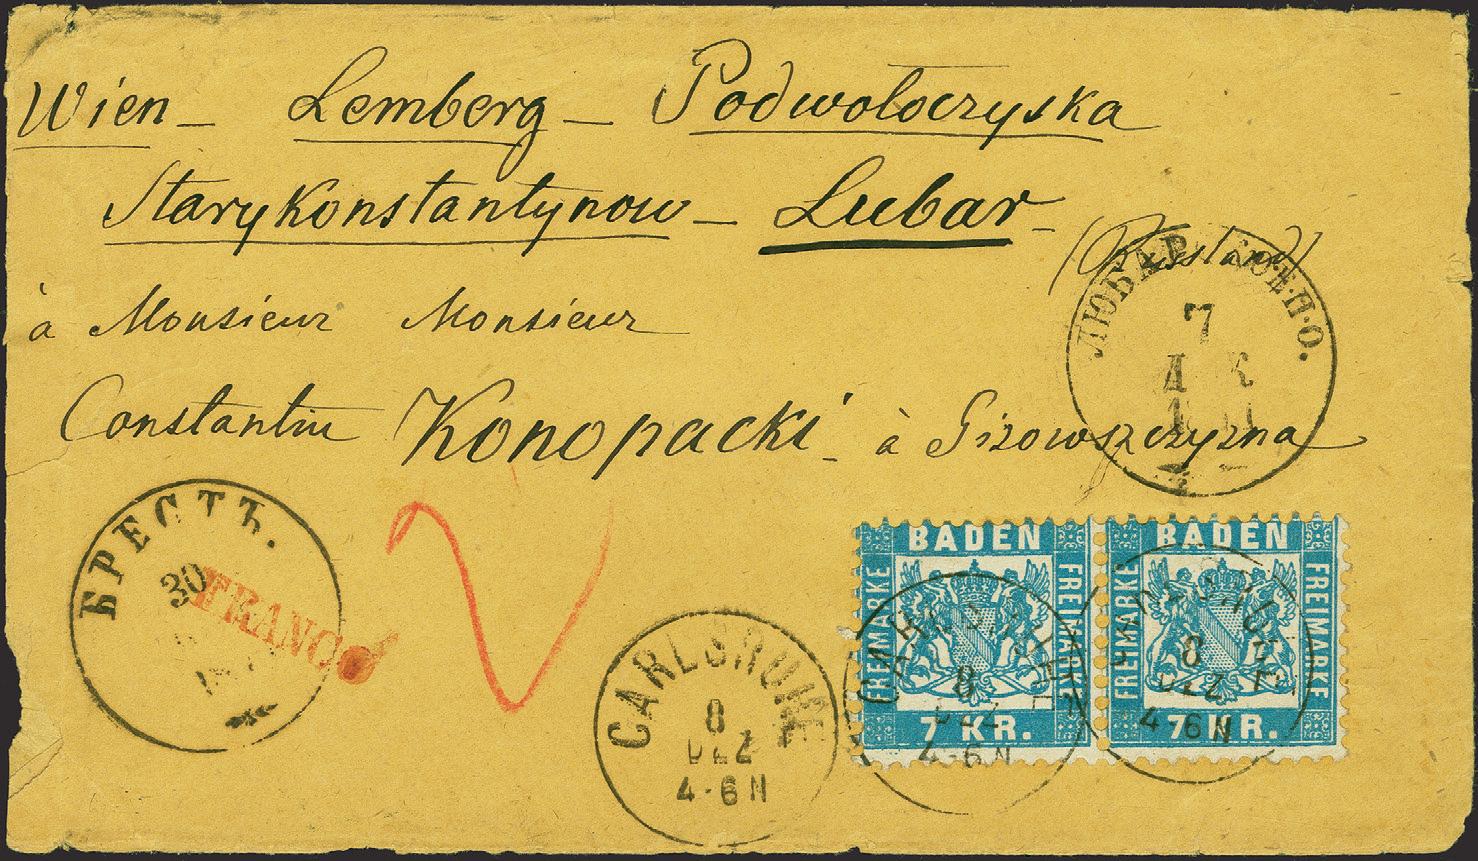 Wien – Lemberg – Podwoloczyska
Starykonstantynow – Lubar –
(Russland)
à Monsieur Monsieur
Constantin Konopacki – à Gizowszczyzna
ЛЮБАР
7
БРЕСТЪ.
30
FRANCO
CARLSRUHE
8
DEZ
4-6N
BADEN
FREIMARKE
FREIMARKE
7 KR.
CARLSRUHE
8
DEZ
4-6N
BADEN
FREIMARKE
FREIMARKE
7 KR.
CARLSRUHE
8
DEZ
4-6N